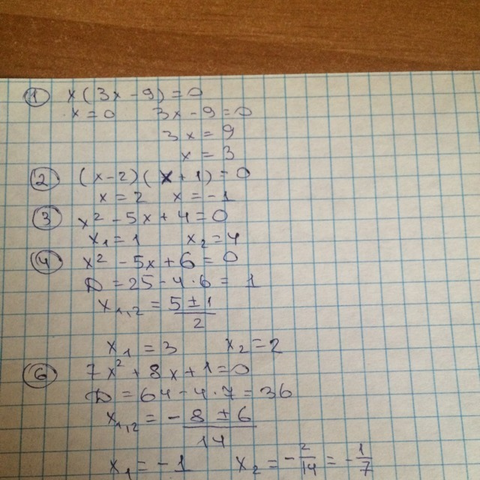 ① x(3x-9)=0
x=0 3x-9=0
3x=9
x=3
② (x-2)(x+1)=0
x=2 x=-1
③ x²-5x+4=0
x₁=1 x₂=4
④ x²-5x+6=0
D=25-4·6=1
x₁,₂=(5±1)/2
x₁=3 x₂=2
⑥ 7x²+8x+1=0
D=64-4·7=36
x₁,₂=(-8±6)/14
x₁=-1 x₂=-2/14=-1/7